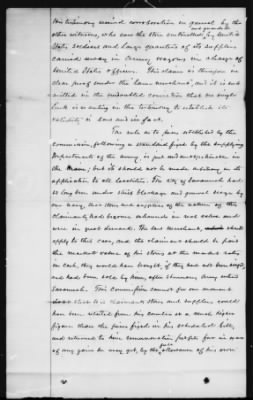 his testimony
other witnesses, who saw the store controlled by United
States soldiers and large quantities of its supplies
carried away in Army wagons in charge of
United States officers. This claim is therefore
clear proof under the law, and it is sub-
mitted in the undoubted conviction that no single
link is wanting in the testimony to establish its
validity in law and in fact.
The rule as to prices established by the
commission, following a standard fixed by the supplying
Departments of the army, is just and unquestionable in
the main; but it should not be made arbitrary in its
application to all localities. The city of Savannah had
so long been under strict blockade and general siege by
our navy, that stores and supplies of the nature of this
claimant's had become enhanced in real value and
were in great demand. The law should
apply to this case, and the claimant should be paid
the market value of his stores at the market rates
in cash, they would have brought, if they had not been seized,
and had been sold by him, after Sherman's Army entered
Savannah. This Commission cannot for one moment
doubt that this claimant's stores and supplies could
have been retailed from his counter at a much higher
figure than the prices fixed in his scheduled bill,
and returned to him remunerative profits far in excess
of any gains he may get, by the full allowance of his own